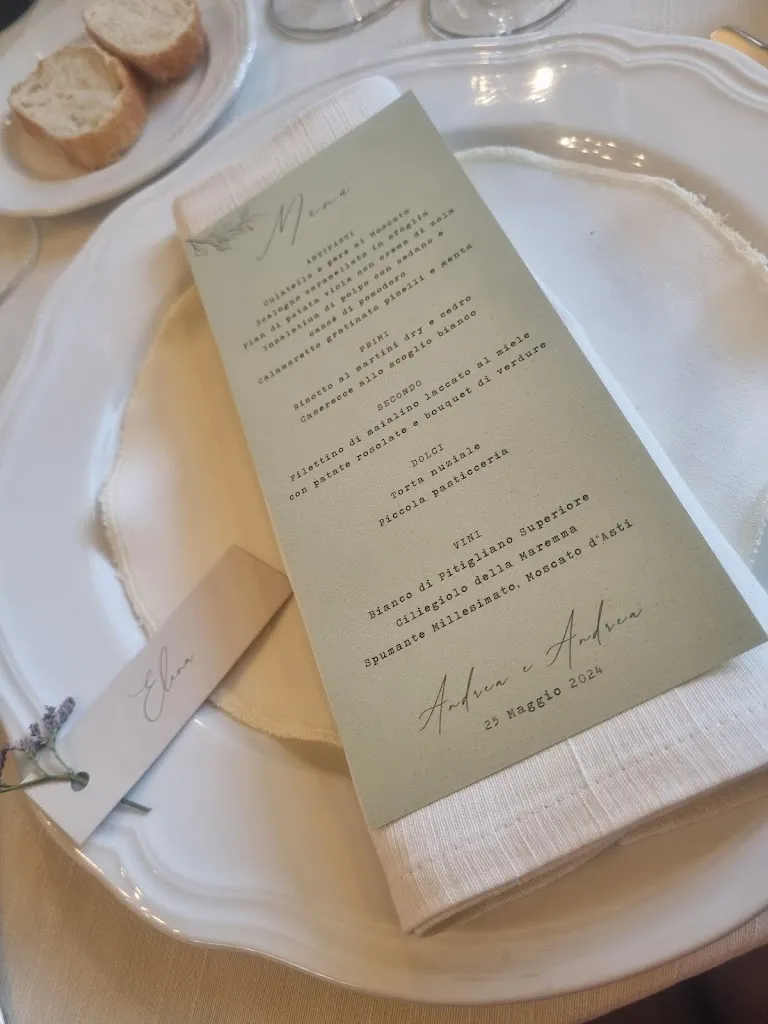 Menu
ANTIPASTI
Culatello e pere al Moscato
Scalogno caramellato in sfoglia
Flan di patata viola con crema di
Insalatina di polpo con sedano e
di Pomodoro
Calamaretto gratinato piselli e menta
PRIMI
Risotto al martini dry e cedro
Caserecce allo scoglio bianco
SECONDO
Filettino di maialino laccato al miele
con patate rosolate e bouquet di verdure
DOLCI
Torta nuziale
Piccola pasticceria
VINI
Bianco di Pitigliano Superiore
Ciliegiolo della Maremma
Spumante Millesimato, Moscato d'Asti
Andrea e Andrea
25 Maggio 2024
Elina